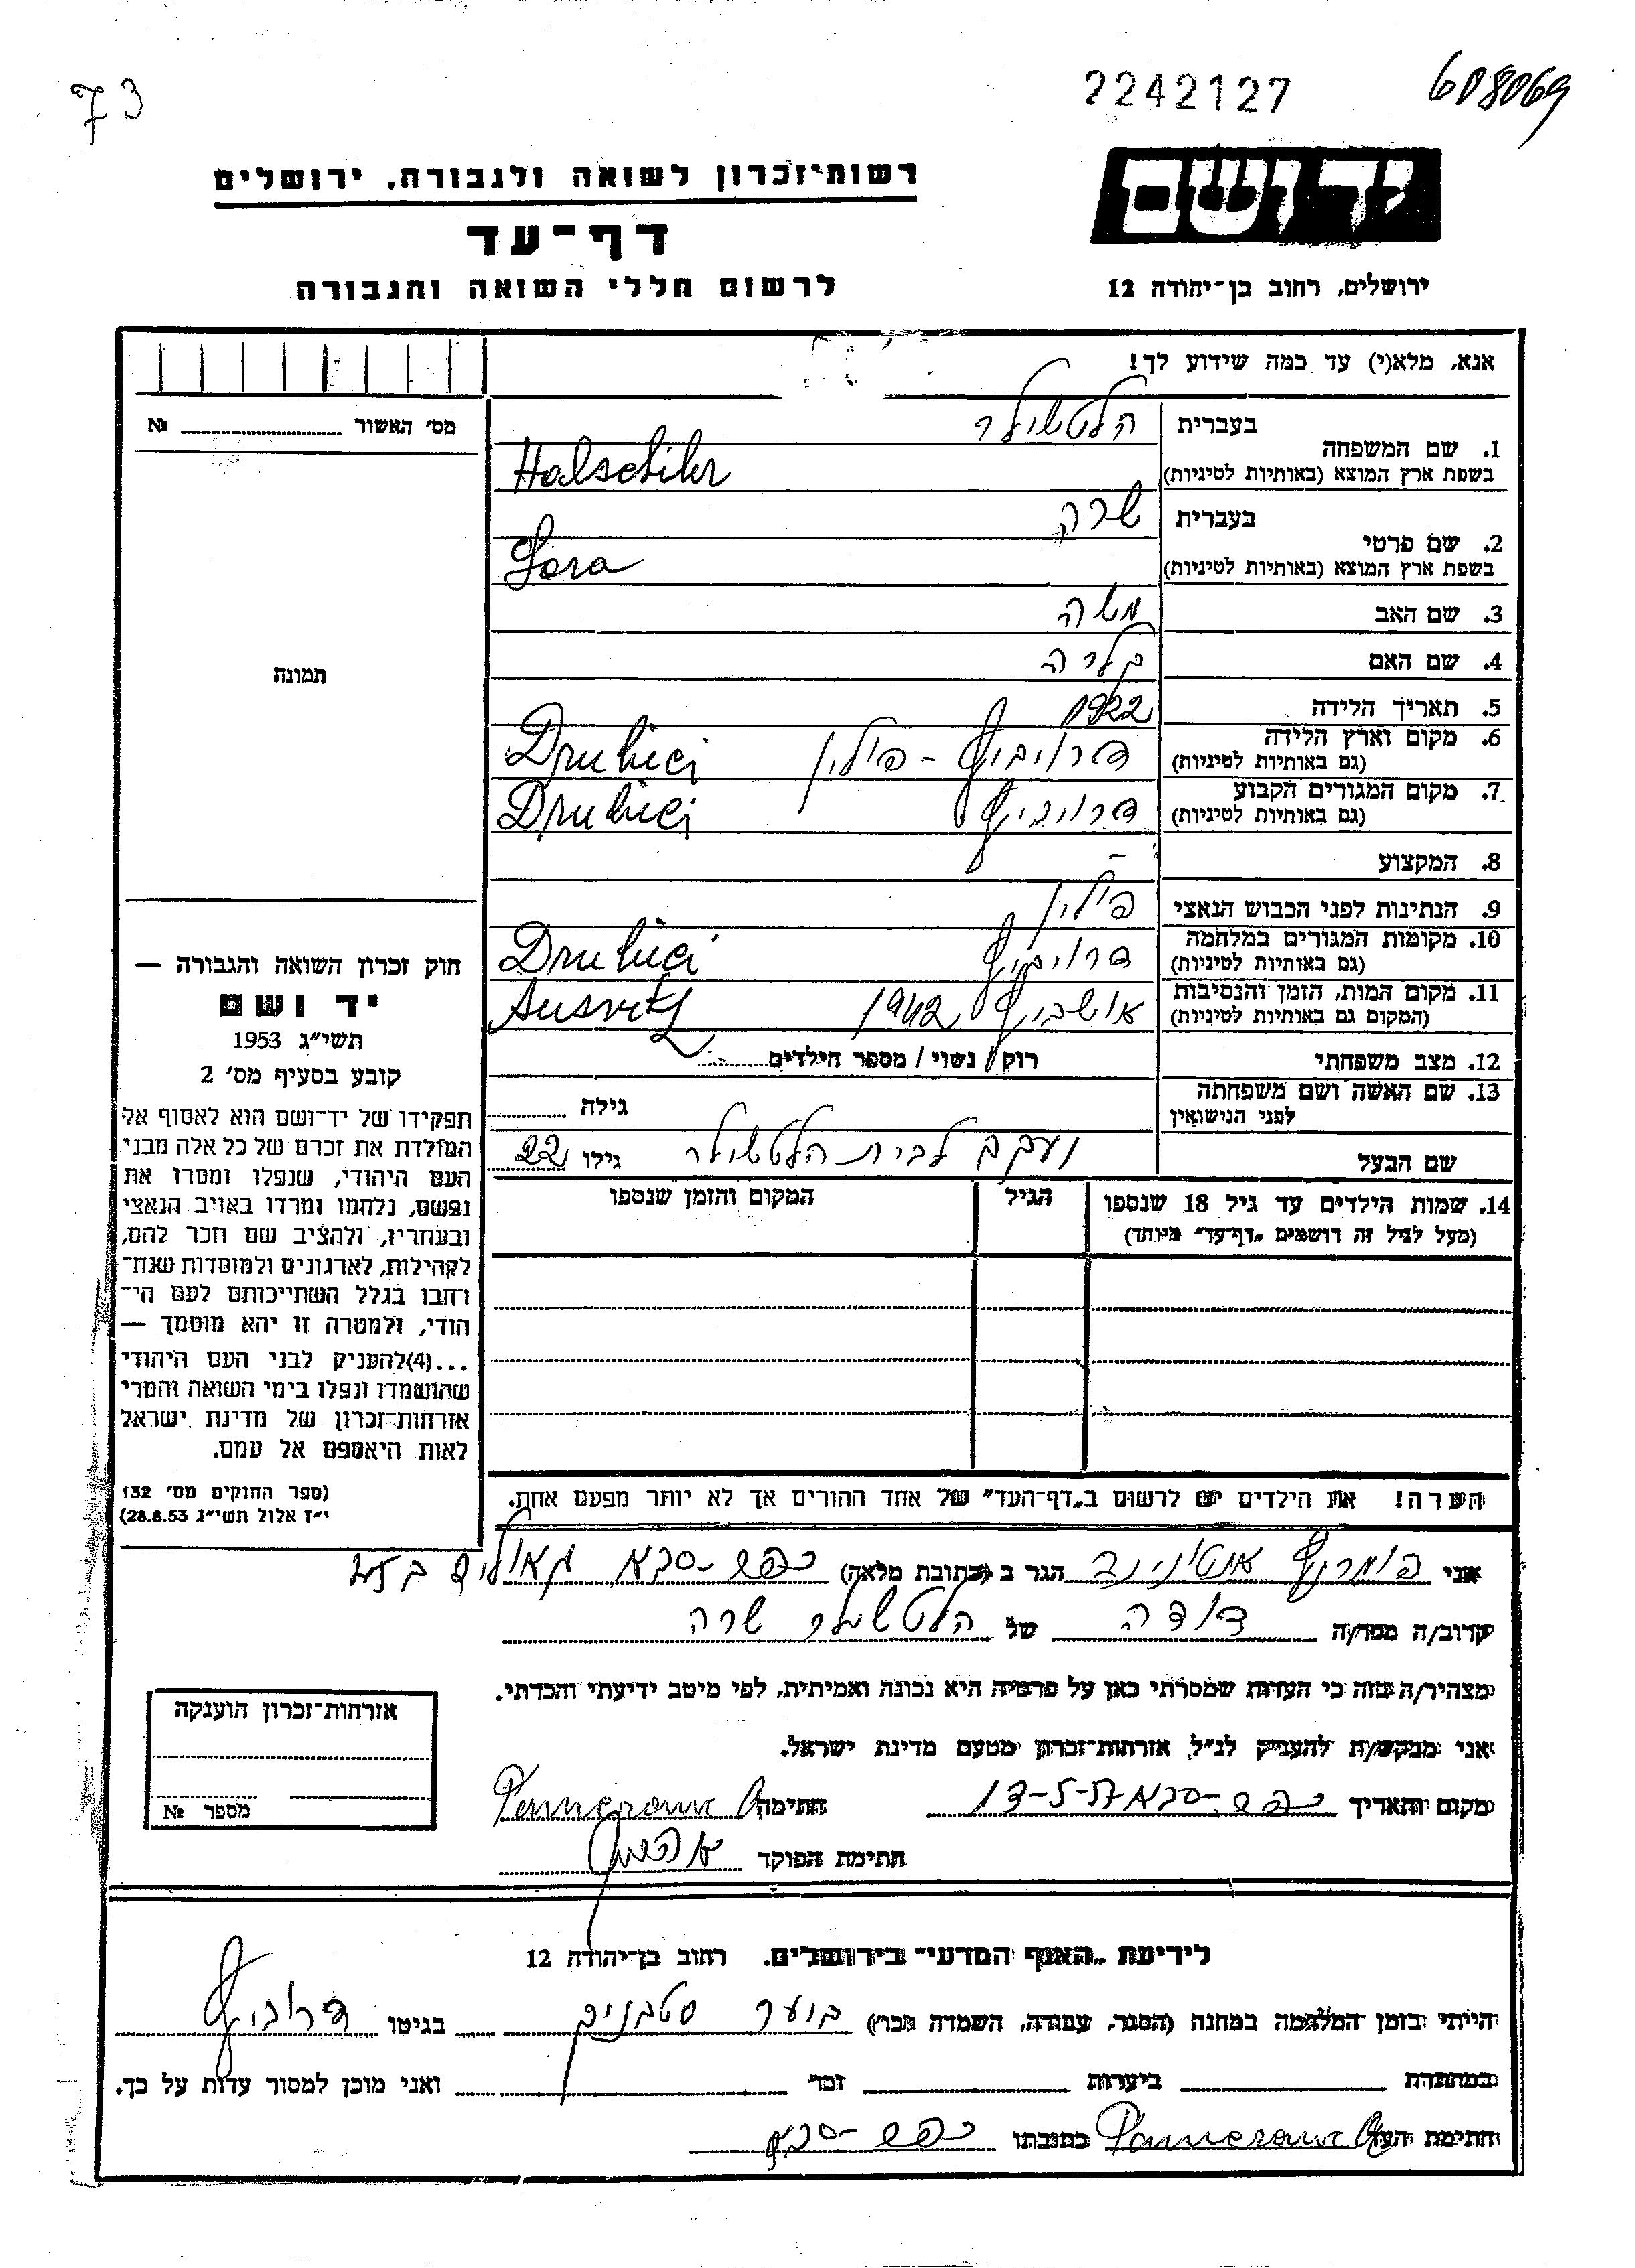 73
2242127
608069
יד ושם
רשות־זכרון לשואה ולגבורה, ירושלים
דף־עד
לרשום חללי השואה והגבורה
ירושלים, רחוב בן־יהודה 12
אנא, מלא(י) עד כמה שידוע לך!
1. שם המשפחה
בעברית הלטשילר
בשפת ארץ המוצא (באותיות לטיניות) Halschiler
2. שם פרטי
בעברית שרה
בשפת ארץ המוצא (באותיות לטיניות) Sora
3. שם האב משה
4. שם האם
5. תאריך הלידה 1922
6. מקום וארץ הלידה דרויביץ - פולין Drubici
(גם באותיות לטיניות)
7. מקום המגורים הקבוע דרויביץ Drubici
(גם באותיות לטיניות)
8. המקצוע –
9. הנתינות לפני הכבוש הנאצי פולין
10. מקומות המגורים במלחמה דרויביץ Drubici
(גם באותיות לטיניות)
11. מקום המות, הזמן והנסיבות אושביץ 1942 Ausvitz
(המקום גם באותיות לטיניות)
12. מצב משפחתי רוק / נשוי / מספר הילדים
13. שם האשה ושם משפחתה
לפני הנישואין גילה
שם הבעל לבית הלטשילר גילו 22
14. שמות הילדים עד גיל 18 שנספו הגיל המקום והזמן שנספו
(מעל לגיל זה רושמים „דף־עד" מיוחד)
הערה! את הילדים יש לרשום ב„דף־העד" של אחד ההורים אך לא יותר מפעם אחת.
מס׳ האשור №
תמונה
חוק זכרון השואה והגבורה —
יד ושם
תשי״ג 1953
קובע בסעיף מס׳ 2
תפקידו של יד־ושם הוא לאסוף אל
המולדת את זכרם של כל אלה מבני
העם היהודי, שנפלו ומסרו את
נפשם, נלחמו ומרדו באויב הנאצי
ובעוזריו, ולהציב שם וזכר להם,
לקהילות, לארגונים ולמוסדות שנח־
רבו בגלל השתייכותם לעם הי־
הודי, ולמטרה זו יהא מוסמך —
...(4)להעניק לבני העם היהודי
שהושמדו ונפלו בימי השואה והמרי
אזרחות־זכרון של מדינת ישראל
לאות היאספם אל עמם.
(ספר החוקים מס׳ 132
י״ז אלול תשי״ג 28.8.53)
אני הגר ב (כתובת מלאה) כפר-סבא
קרוב/ה מפר/ה דודה של הלטשילר שרה
מצהיר/ה בזה כי העדות שמסרתי כאן על פרטיה היא נכונה ואמיתית, לפי מיטב ידיעתי והכרתי.
אני מבקש/ת להעניק לנ״ל אזרחות־זכרון מטעם מדינת ישראל.
מקום ותאריך כפר-סבא 13-5-57 חתימה
חתימת הפוקד
אזרחות־זכרון הוענקה
מספר №
לידיעת „האגף המדעי" בירושלים. רחוב בן־יהודה 12
הייתי בזמן המלחמה במחנה (הסגר, עבודה, השמדה וכר׳) בגיטו דרוביץ
במחתרת ביערות וכר׳ ואני מוכן למסור עדות על כך.
חתימת העד כתובתו כפר-סבא